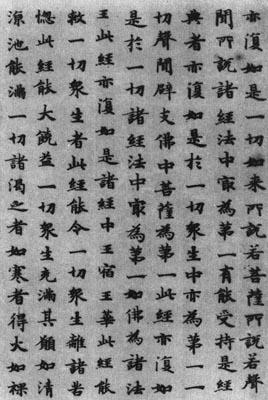 亦復如是一切如來所說若菩薩所說若聲
聞所說諸經法中冣為第一有能受持是經
典者亦復如是於一切衆生中亦為第一一
切聲聞辟支佛中菩薩為第一此經亦復如
是於一切諸經法中冣為第一如佛為諸法
王此經亦復如是諸經中王宿王華此經能
救一切衆生者此經能令一切衆生離諸苦
惱此經能大饒益一切衆生充滿其願如清
涼池能滿一切諸渴乏者如寒者得火如裸